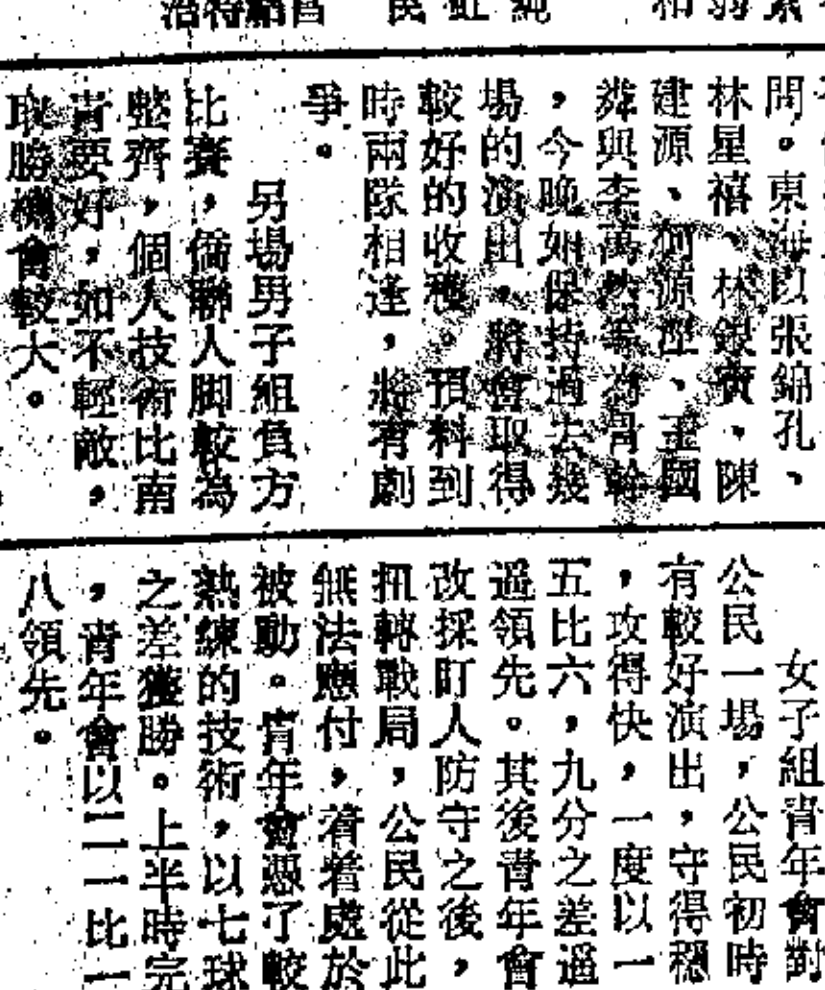 問。東海以張錦孔、
林星禧、林銀寶、陳
建源、何源、王國
與李萬等為骨幹
，今晚如保持過去幾
場的演出，將會取得
較好的收穫。預料到
時兩隊相逢，將有劇
爭。
另場男子組負方
比賽，僑聯人脚較為
整齊，個人技術比南
青要好，如不輕敵，
取勝機會較大。
女子組青年會對
公民一場，公民初時
有較好演出，守得穩
，攻得快，一度以一
五比六，九分之差遥
遥領先。其後青年會
改採盯人防守之後，
扭轉戰局，公民從此
無法應付，着着處於
被動。青年會憑了較
熟練的技術，以七球
之差獲勝。上半時完
，青年會以二一比一
八領先。